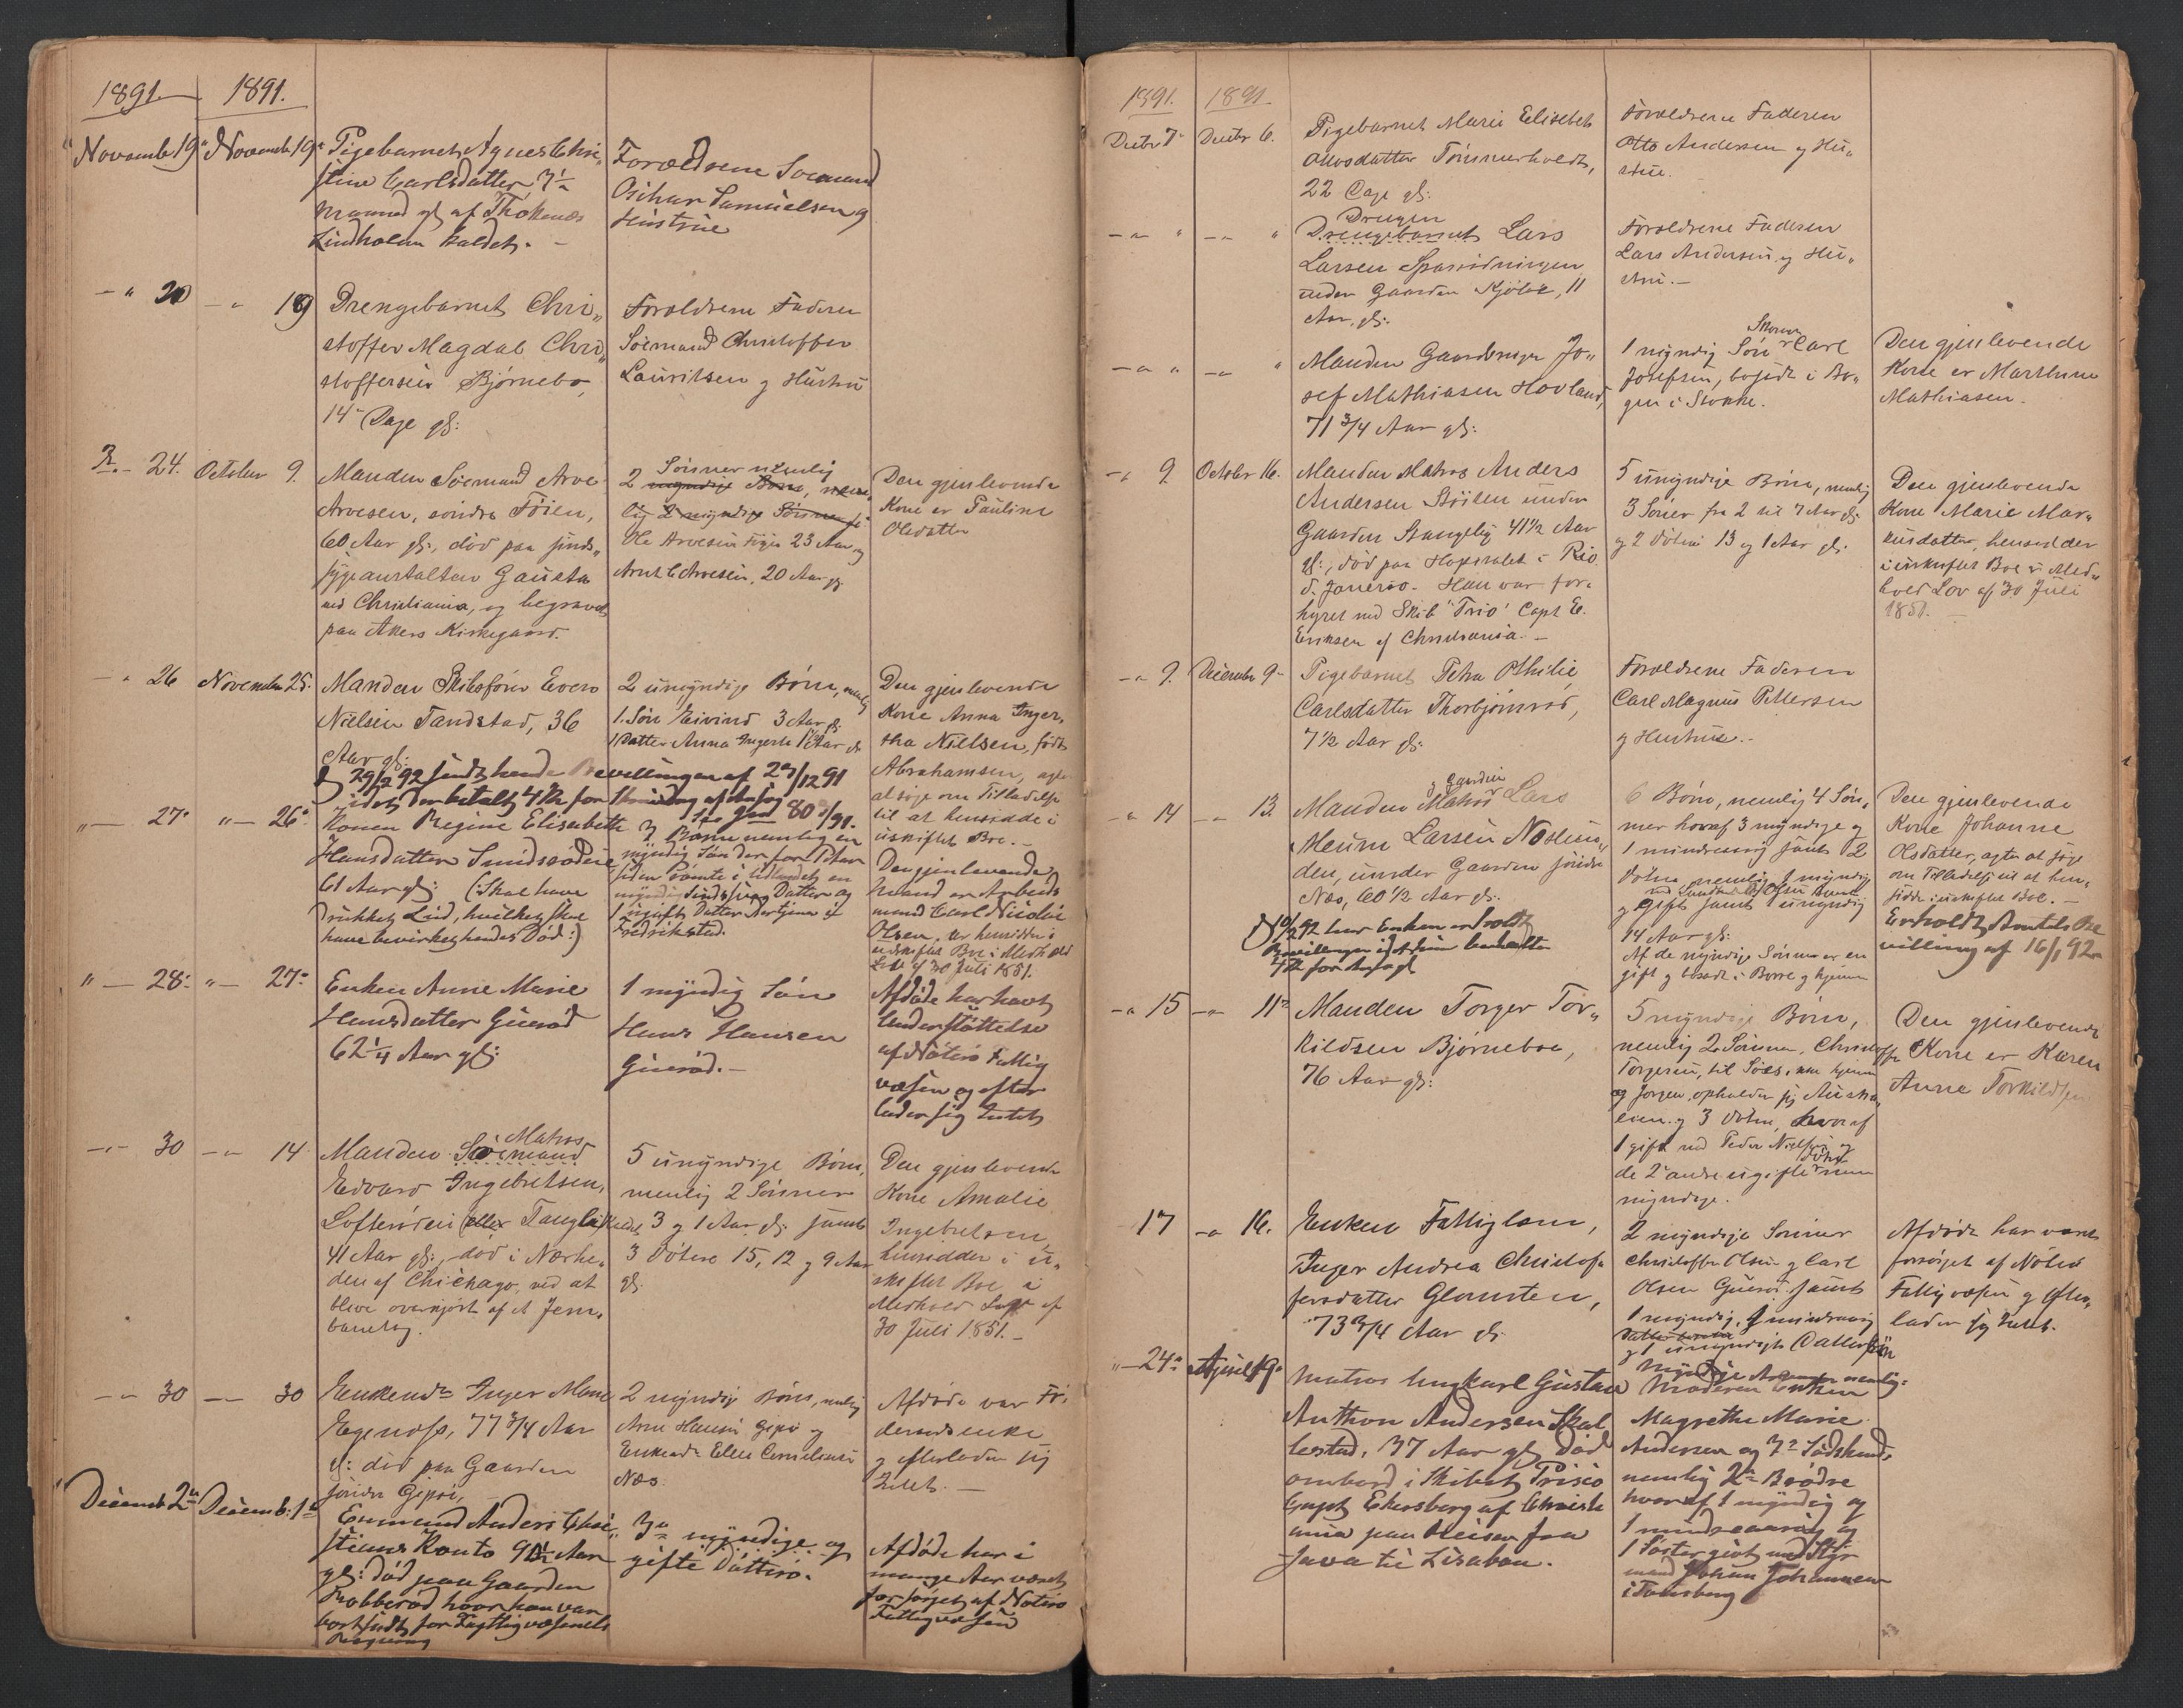 1891. 1891.
November 19. November 19. Pigebarnet Agnes Chri-
stine Carlsdatter, 7½
Maaned gl. af
Lindholm kaldet.
Forældrene Sømand
Oskar Samuelsen og
Hustrue
20 19 Drengebarnet Chri-
stoffer Magdal Chri-
stoffersen Bjørnebo,
14 Dage gl:
Forældrene Faderen
Sømand Christoffer
Lauritsen og Hustru
24. October 9. Manden Sømand Arve
Arvesen, søndre Føien,
60 Aar gl:, død paa Sinds-
sygeanstalten Gausta
ved Christiania, og begravet
paa Akers Kirkegaard.
2 Sønner nemlig
Ole Arvesen Føien 23 Aar og
Arnt C. Arvesen, 20 Aar gl.
Den gjenlevende
Kone er Pauline
Olsdatter
26 November 25. Manden Skibsfører Evero
Nielsen Tandstad, 36
Aar gl:
2 umyndige Børn, nemlig
1. Søn Eivind 3 Aar gl.
1 Datter Anna Ingerta 1 Aar gl
Den gjenlevende
Kone Anna Inger-
tha Nielsen, født
Abrahamsen, agter
at søge om Tilladelse
til at hensidde i
uskiftet Boe.
27 26 Konen Regine Elisabeth
Hansdatter Smidsrødeie
61 Aar gl: (Skal have
drukket Lud, hvilket skal
have bevirket hendes Død:)
3 Børn nemlig en
myndig Søn
1 ugift Datter
Fredrikstad.
Den gjenlevende
Mand er Arbeids-
mand Carl Nicolai
Olsen, der hensidder i
uskiftet Boe i Medhold
Lov af 30 Juli 1851.
28 27 Enken Anne Marie
Hansdatter Guerød
62¼ Aar gl:
1 myndig Søn
Hans Hansen
Guerød.
Afdøde har havt
Understøttelse
af Nøterø Fattig
væsen og efter
lader sig Intet
30 14 Manden Matros Sømand
Edvard Ingebretsen,
Lofterødeie (eller Tangla kaldet
41 Aar gl:, død i Nærhe-
den af Chichago, ved at
blive overkjørt af et Jern-
banetog.
5 umyndige Børn,
nemlig 2 Sønner
3 og 1 Aar gl: samt
3 Døtre 15, 12 og 9 Aar
gl:
Den gjenlevende
Kone Amalie
Ingebretsen,
hensidder i u-
skiftet Boe i
Medhold Lov af
30 Juli 1851.
30 30 Enkemd. Inger Marie
Egenæss, 77¾ Aar
gl: død paa Gaarden
søndre Gipø,
2 myndige Børn, nemlig
Arne Hansen Gipø og
Enkemd. Ellen Cornelsen
Næs.
Afdøde var Fø-
deraadsenke
og efterlader sig
Intet.
Decemb 2 Decemb: 1 Enmand Anders Chri-
stians Kanto Aar
gl: død paa Gaarden
Robberød hvor han var
bortsat for Fattigvæsenets
Regning
3 myndige og
gifte Døttre.
Afdøde har i
mange Aar været
forsørget af Nøterø
Fattigvæsen
1891. 1891.
Decbr 7 Decbr 6. Pigebarnet Marie Elisebet
Ottosdatter Tømmerholdt,
22 Dage gl:
Forældrene Faderen
Otto Andersen og Hu-
strue.
Drengen
Drengebarnet Lars
Larsen Sparrødningen
under Gaarden Kjøle, 11
Aar, gl:
Forældrene Faderen
Lars Andersen og Hu-
stru.
Manden Gaardbruger Jo-
sef Mathiasen Hovland,
71¾ Aar gl:
1 myndig Søn Carl
Josefsen, bosidt i Bo-
gen i Stokke.
Den gjenlevende
Kone er Marthine
Mathiasen.
9. October 16. Manden Matros Anders
Andersen Støiten under
Gaarden Stangeby 41½ Aar
gl:, død paa Hospitalet i Rio
d. Janeiro. Han var for-
hyret med Skib "Trio" Capt E.
Eriksen af Christiania.
5 umyndige Børn, nemlig
3 Sønner fra 2 til 7 Aar gl:
og 2 Døtre 13 og 1 Aar gl:
Den gjenlevende
Kone Marie Mar-
kusdatter, hensidder
i uskiftet Boe i Med-
hold Lov af 30 Juli
1851.
9. December 9 Pigebarnet Petra Othilie
Carlsdatter Thorbjørnrød,
7½ Aar gl:
Forældrene Faderen
Carl Magnus Pettersen
og Hustrue.
14 13. Manden Matros Lars
Larsen
den, under Gaarden søndre
Næs, 60½ Aar gl:
6 Børn, nemlig 4 Søn-
ner hvoraf 3 myndige og
1 mindreaarig samt 2
Døtre nemlig 1 myndig
og gift samt 1 umyndig
14 Aar gl:
Af de myndige Sønner er en
gift og bosadt i Borre og hjemme
Den gjenlevende
Kone Johanne
Olsdatter, agter at søge
om Tilladelse til at hen-
sidde i uskiftet Boe.
Erholdt Amtets Be
villing af 16/1 92
15 11 Manden Torger Tor-
kildsen Bjørneboe,
76 Aar gl:
5 myndige Børn,
nemlig 2 Sønner, Christoffer
Torgersen, til Søes,
og Jørgen, opholder sig Austra-
lien og 3 Døtre, hvoraf
1 gift med Peder Nielsen og
de 2 andre ugifte men
myndige.
Den gjenlevende
Kone er Karen
Anne Torkildsen
17 16. Enken Fattiglem,
Inger Andrea Christof-
fersdatter Glomsten,
73¾ Aar gl:
2 myndige Sønner
Christoffer Olsen og Carl
Olsen Guerød samt
1 myndig, 1 mindreaarig
Afdøde har været
forsørget af Nøterø
Fattigvæsen og efter-
lader sig Intet.
24 April 19 Matros Ungkarl Gustav
Anthon Andersen Skal
lestad, 37 Aar gl: død
ombord i Skibet Prisco
Capt Ekersberg af Christi
ania paa Reisen fra
Java til Lisabon.
Moderen Enken
Magrethe Marie
Andersen og 3 Sødskende
nemlig 2 Brødre
hvoraf 1 myndig og
1 mindreaarig og
1 Søster givt med Styr
mand Johan Johannesen
i Tønsberg